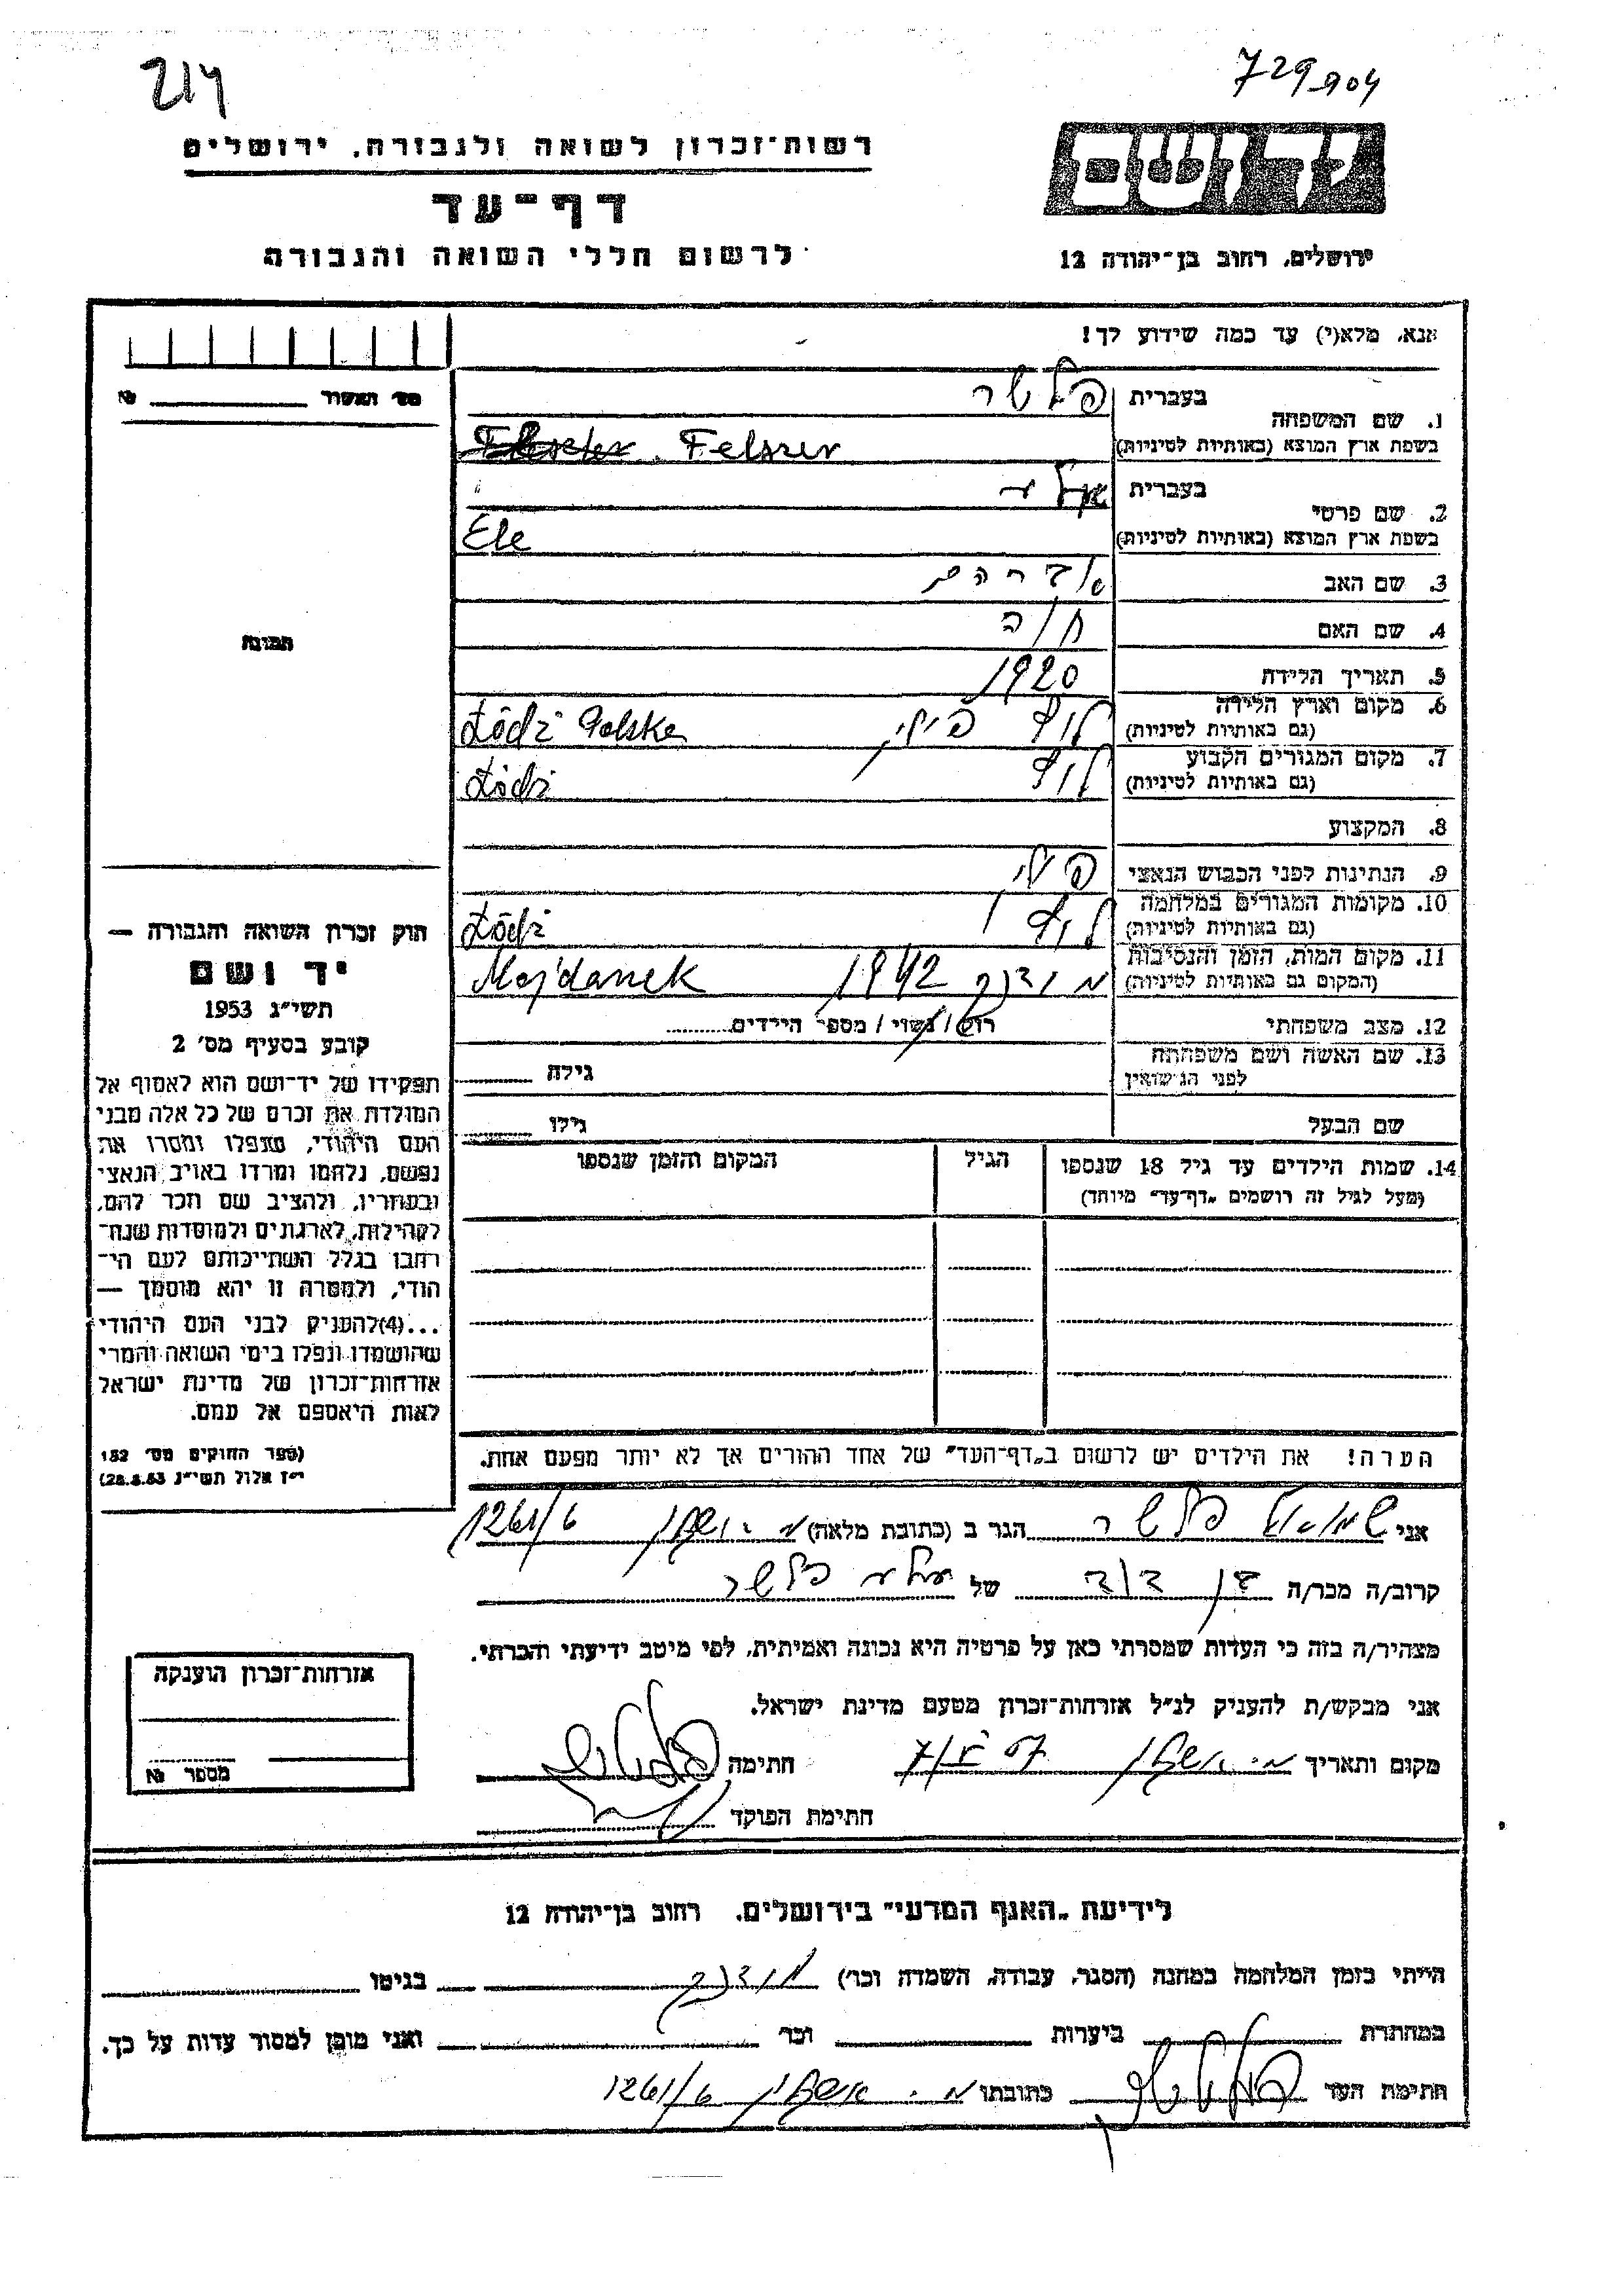 214
729904
רשות־זכרון לשואה ולגבורה, ירושלים
דף־עד
לרשום חללי השואה והגבורה
ידושם
ירושלים, רחוב בן־יהודה 12
אנא, מלא(י) עד כמה שידוע לך!
מס׳ האשור № 
1. שם המשפחה בעברית פלשר
בשפת ארץ המוצא (באותיות לטיניות) Felszer
2. שם פרטי בעברית
בשפת ארץ המוצא (באותיות לטיניות) Ele
3. שם האב אברהם
4. שם האם חוה
5. תאריך הלידה 1920
6. מקום וארץ הלידה (גם באותיות לטיניות) לודז פולין Łódź Polska
7. מקום המגורים הקבוע (גם באותיות לטיניות) לודז Łódź
8. המקצוע
9. הנתינות לפני הכבוש הנאצי פולני
10. מקומות המגורים במלחמה (גם באותיות לטיניות) לודז Łódź
11. מקום המות, הזמן והנסיבות (המקום גם באותיות לטיניות) מידנק 1942 Majdanek
12. מצב משפחתי רוק / נשוי / מספר הילדים
13. שם האשה ושם משפחתה לפני הנישואין גילה
שם הבעל גילו
14. שמות הילדים עד גיל 18 שנספו הגיל המקום והזמן שנספו
(מעל לגיל זה רושמים „דף־עד״ מיוחד)
תמונה
חוק זכרון השואה והגבורה —
יד ושם
תשי״ג 1953
קובע בסעיף מס׳ 2
תפקידו של יד־ושם הוא לאסוף אל
המולדת את זכרם של כל אלה מבני
העם היהודי, שנפלו ומסרו את
נפשם, נלחמו ומרדו באויב הנאצי
ובעוזריו, ולהציב שם וזכר להם,
לקהילות, לארגונים ולמוסדות שנח־
רבו בגלל השתייכותם לעם הי־
הודי, ולמטרה זו יהא מוסמך —
...(4)להעניק לבני העם היהודי
שהושמדו ונפלו בימי השואה והמרי
אזרחות־זכרון של מדינת ישראל
לאות היאספם אל עמם.
(ספר החוקים מס׳ 132
י״ז אלול תשי״ג 28.8.53)
הערה! את הילדים יש לרשום ב„דף־העד״ של אחד ההורים אך לא יותר מפעם אחת.
אני שמואל פלשר הגר ב (כתובת מלאה) 1261/6
קרוב/ה מכר/ה בן דוד של פלשר
מצהיר/ה בזה כי העדות שמסרתי כאן על פרטיה היא נכונה ואמיתית, לפי מיטב ידיעתי והכרתי.
אני מבקש/ת להעניק לנ״ל אזרחות־זכרון מטעם מדינת ישראל.
מקום ותאריך חתימה
חתימת הפוקד
אזרחות־זכרון הוענקה
מספר №
לידיעת „האגף המדעי״ בירושלים, רחוב בן־יהודה 12
הייתי בזמן המלחמה במחנה (הסגר, עבודה, השמדה וכו׳) מידנק בגיטו
במחתרת ביערות וכו׳ ואני מוכן למסור עדות על כך.
חתימת העד כתובתו 1261/6